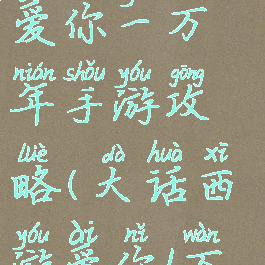 爱你一万
nián shǒu yóu gōng
年手游攻
lüè dà huà xī
略(大话西
yóu ài nǐ wàn
游爱你1万